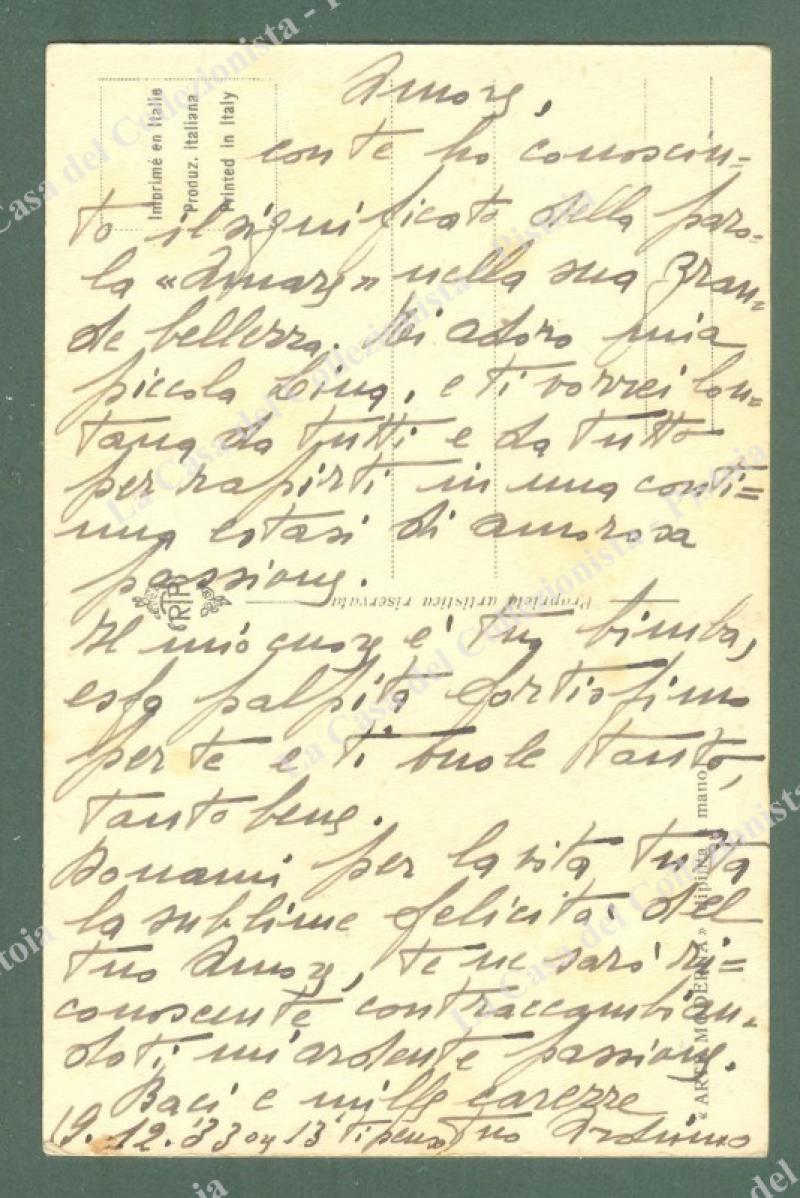 Amore,
con te ho conosciu=
to il significato della paro=
la «Amare» nella sua gran=
de bellezza. Ti adoro mia
piccola Lina, e ti vorrei lon=
tana da tutti e da tutto
per rapirti in una conti=
nua estasi di amorosa
passione.
Il mio cuore è tuo bimba,
esso palpita fortissimo
per te e ti vuole tanto,
tanto bene.
Donami per la vita tutta
la sublime felicità del
tuo Amore, te ne sarò ri=
conoscente contraccambian=
doti un'ardente passione.
Baci e mille carezze
19.12.33 ore 13 ti pensa tuo
Imprimé en Italie
Produz. Italiana
Printed in Italy
Proprietà artistica riservata
« ARTE MODERNA » dipinta a mano
La Casa del Collezionista - Pistoia